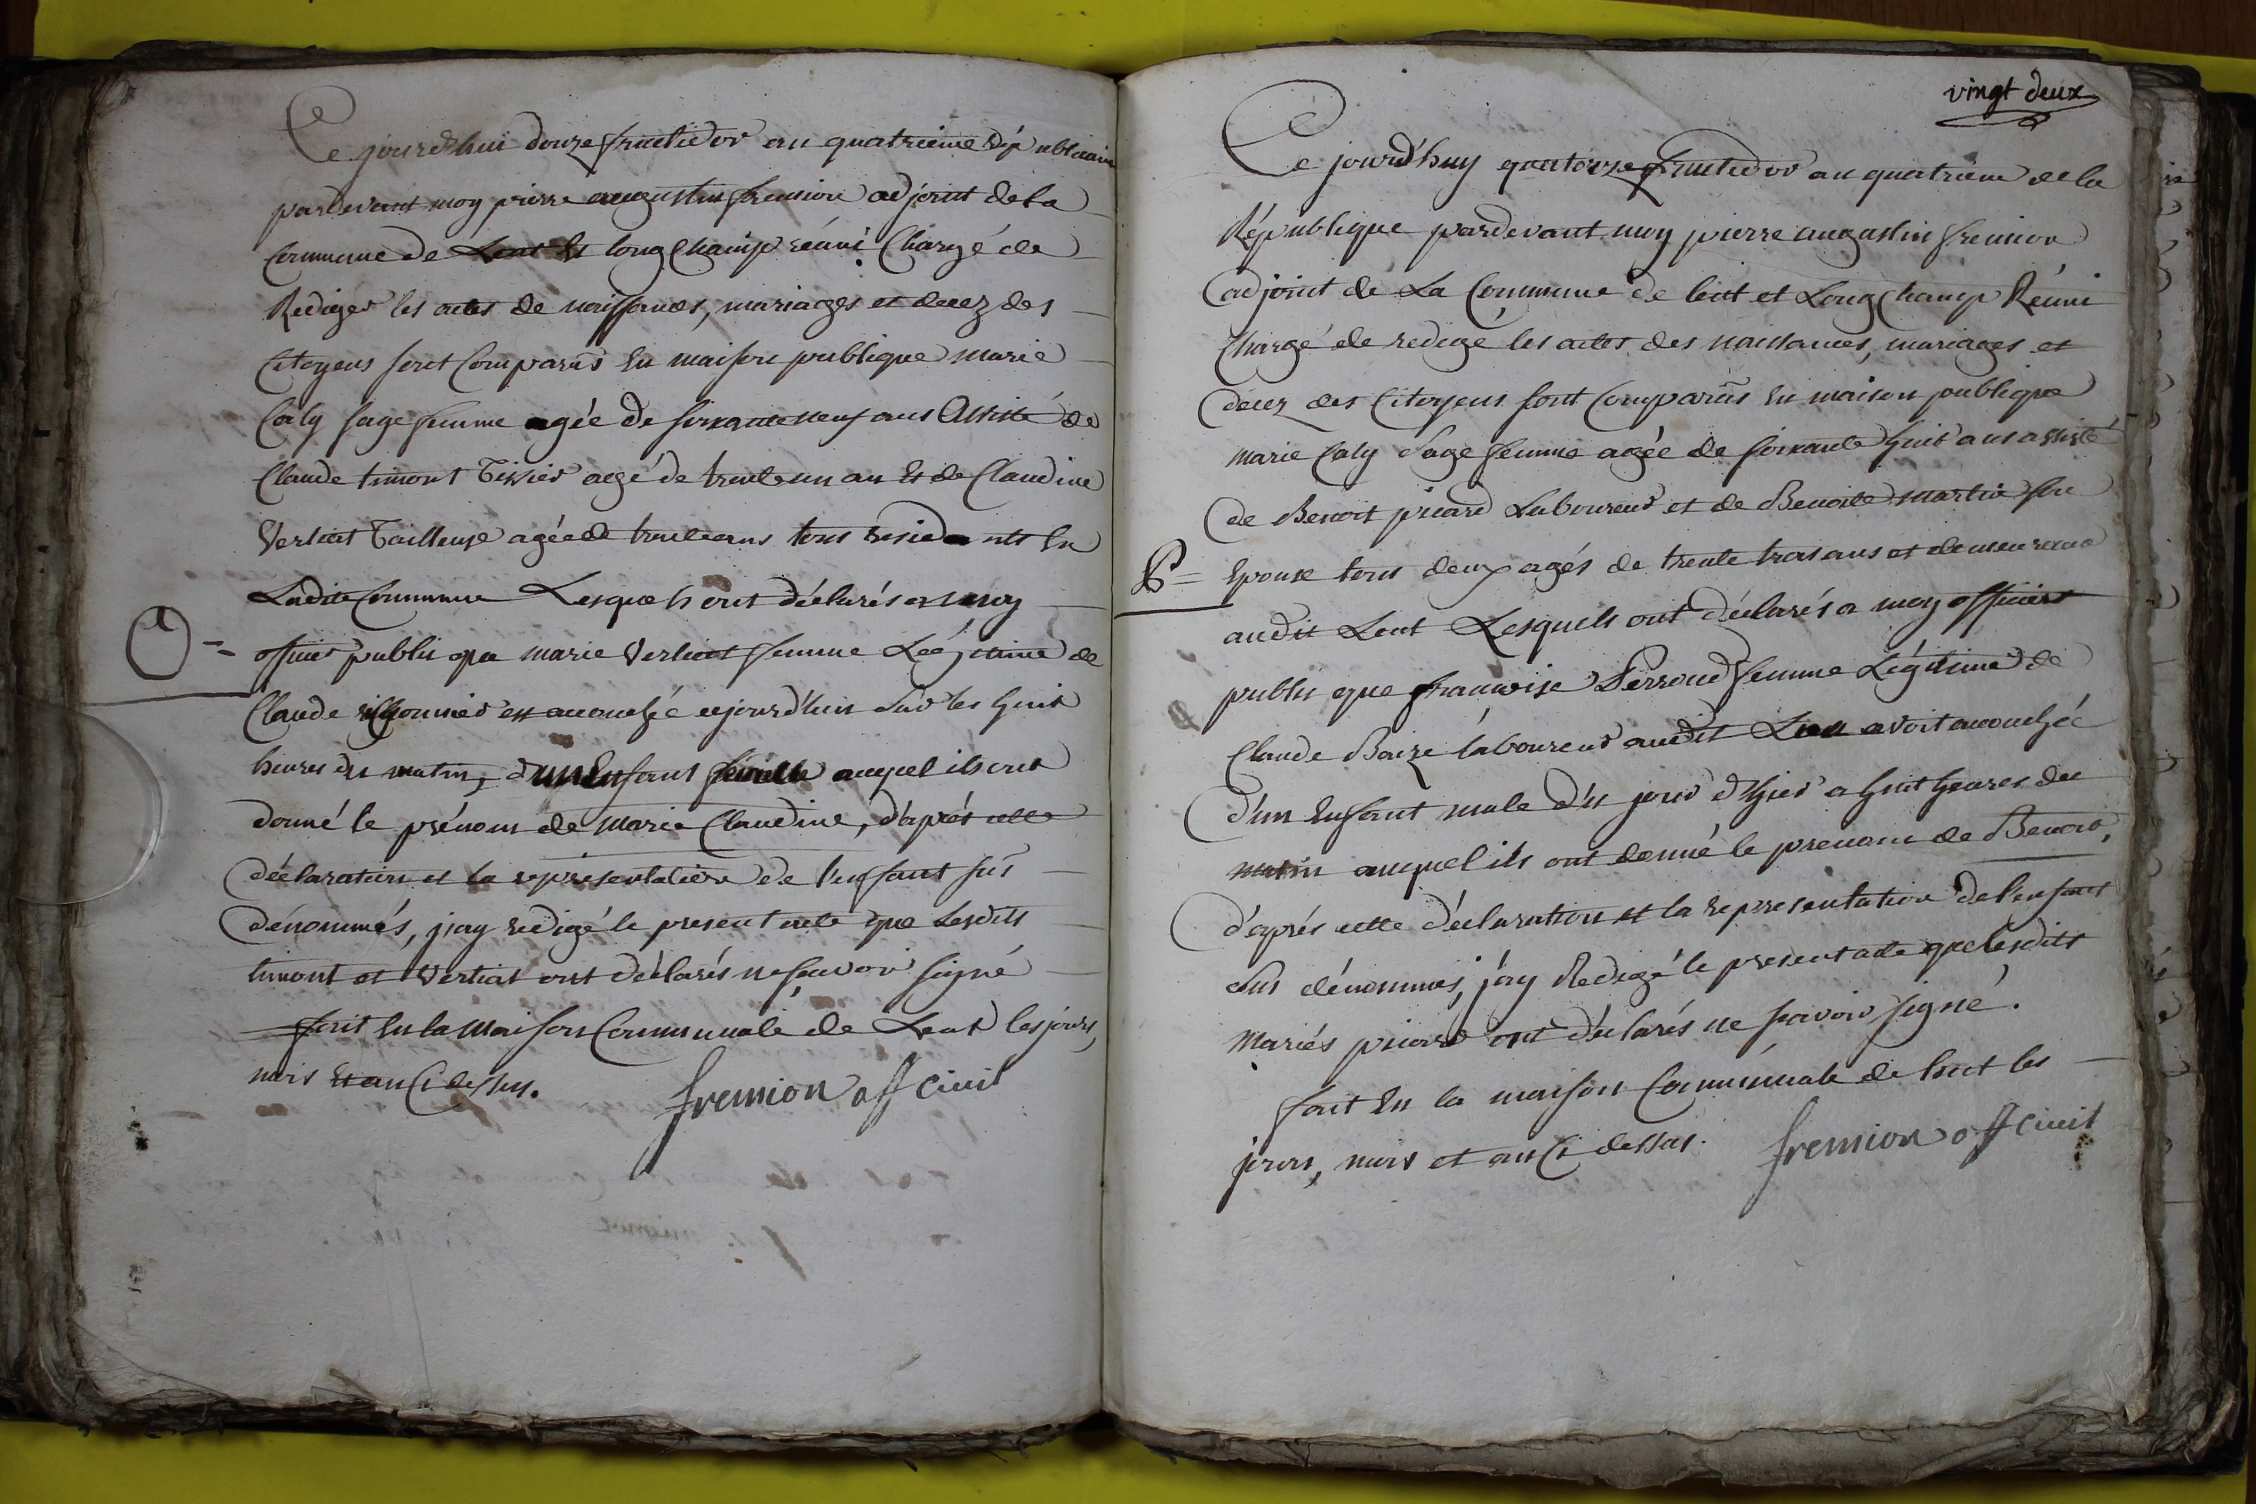 Ce jourd'hui douze fructidor an quatrieme Républicain
pardevant moy pierre augustin fremion adjoint de la
Commune de Lent Et long Champ réuni Chargé de
Rediger les actes de naissances, mariages et decez des
Citoyens sont Comparus En maison publique marie
Caly sage femme agée de soixante neuf ans Assisté de
Claude timont Tissier agé de trente un an Et de Claudine
Vertiat Tailleuse agée de trente ans tous residants En
Ladite Commune Lesquels ont déclarés a moy
officier public que marie Vertiat femme Légitime de
Claude est accouchée ajourd'huis sur les huit
heures du matin, d'un Enfant femelle auquel ils ont
donné le prénom de Marie Claudine, d'aprés cette
déclaration et la representation de l'enfant sus
dénommés, j'ay redigé le present acte que Lesdits
timont et Vertiat ont déclarés ne scavoir signé
fait En la Maison Communale de Lent les jours,
mois Et an Ci dessus. fremion off civil
O =
vingt deux
Ce jourd'huy quatorze fructidor an quatrieme de la
République pardevant moy pierre augustin fremion
adjoint de La Commune de lent et Long Champ Réuni
Chargé de redigé les actes des naissances, mariages et
decez des Citoyens sont Comparus En maison publique
marie Caly Sage femme agée de soixante huit ans assisté
de Benoit picard Laboureur et de Benoite Martin sa
P = Epouse tous deux agés de trente trois ans et demeurant
audit Lent Lesquels ont déclarés a moy officiers
public que francoise Perroud femme Légitime de
Claude Baize laboureur audit Lieu avoit accouchée
d'un Enfant male du jour d'hier a huit heures du
matin auquel ils ont donné le prenom de Benoit,
d'aprés cette déclaration et la representation de l'enfant
sus dénommés, j'ay Redigé le present acte que lesdits
Mariés picard ont déclarés ne scavoir signé.
fait En la maison Communale de lent les
jours, mois et an Ci dessus. fremion off civil